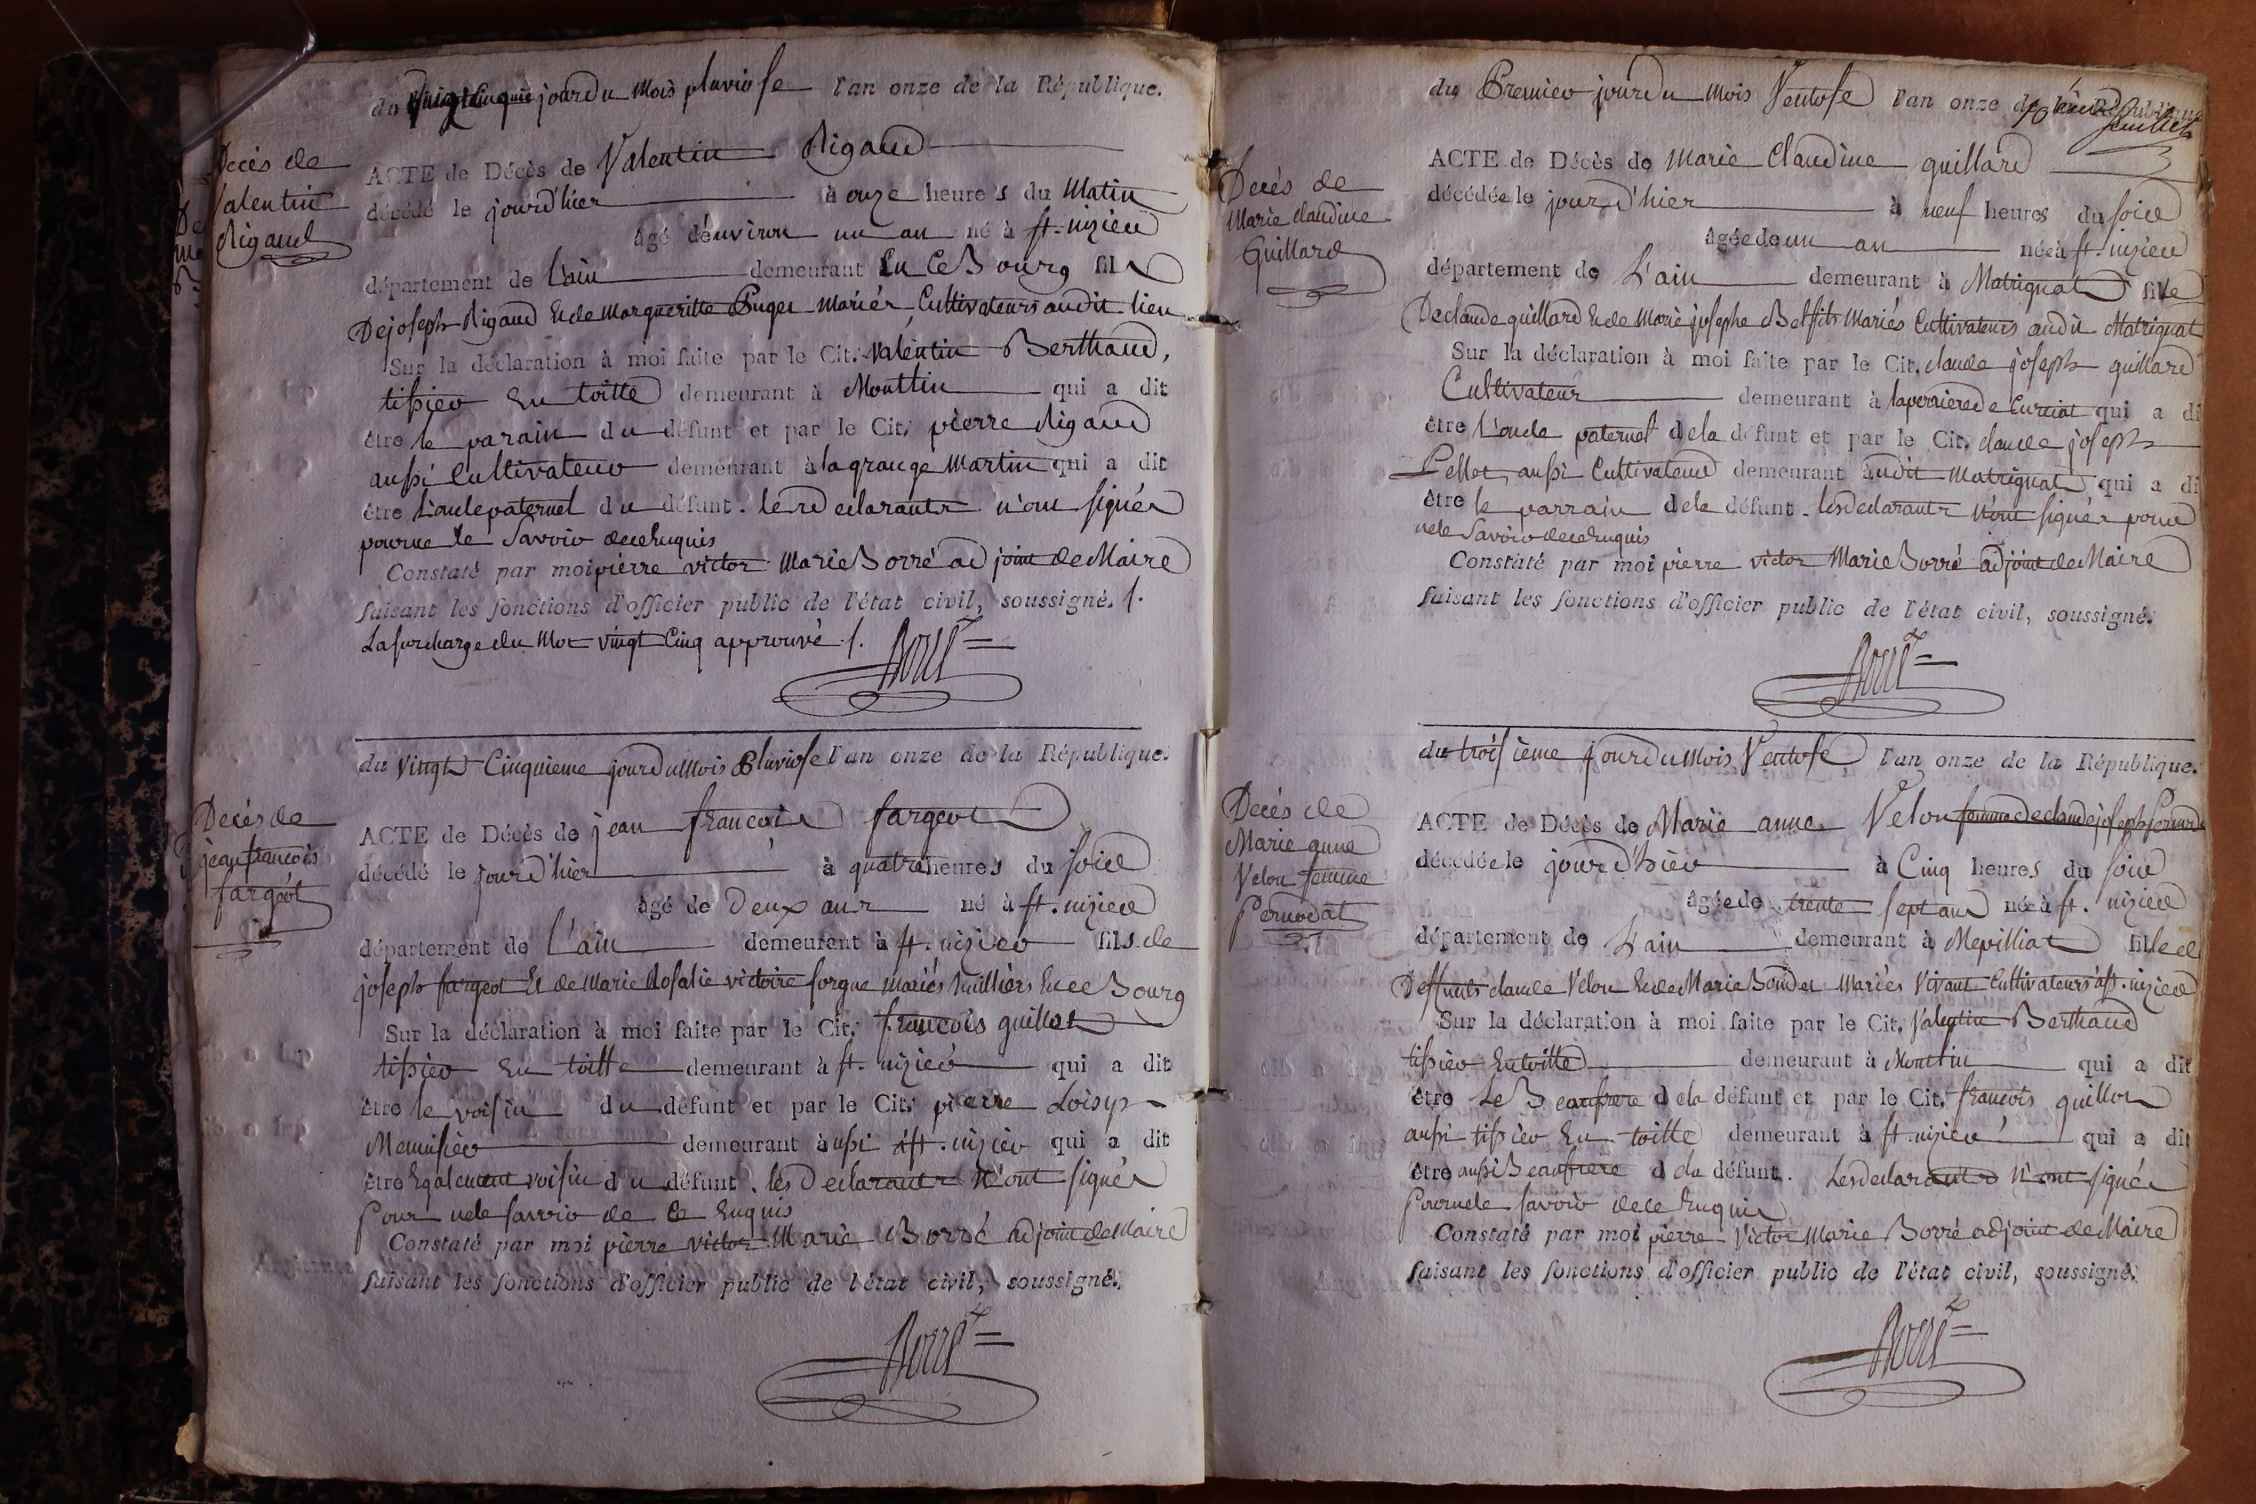 du vingt Cinquie jour du Mois pluviose l'an onze de la République.
Decès de
Valentin
Rigaud
ACTE de Décès de Valentin Rigaud
décédé le jourd'hier à onze heures du Matin
âgé d'environ un an né à st. nizier
département de L'ain demeurant En Ce Bourg fils
De joseph Rigaud Et de Margueritte Puget Mariés Cultivateurs audit lieu
Sur la déclaration à moi faite par le Cit. Valentin Berthaud,
tissier En toille demeurant à Montlin qui a dit
être le parain du défunt et par le Cit. pierre Rigaud
aussi Cultivateur demeurant à la grange Martin qui a dit
être L'oncle paternel du défunt. les declarants n'ont signés
pour ne le savoir de ce Enquis
Constaté par moi pierre victor Marie Borré adjoint de Maire
faisant les fonctions d'officier public de l'état civil, soussigné. /.
La surcharge du Mot vingt Cinq approuvé /.
Borré
du Vingt Cinquieme jour du Mois Pluviose l'an onze de la République.
Decès de
jean francois
fargeot
ACTE de Décès de jean francois fargeot
décédé le jourd'hier à quatre heures du soir
âgé de Deux ans né à st. nizier
département de L'ain demeurant à st. nizier fils de
joseph fargeot Et de Marie Rosalie victoire forgue mariés huilliers En ce Bourg
Sur la déclaration à moi faite par le Cit. francois guillot
tissier En toille demeurant à st. nizier qui a dit
être le voisin du défunt et par le Cit. pierre Loisy
Menuisier demeurant aussi à st. nizier qui a dit
être Egalement voisin du défunt. les Declarants N'ont signés
Pour ne le savoir de Ce Enquis
Constaté par moi pierre victor Marie Borré adjoint de Maire
faisant les fonctions d'officier public de l'état civil, soussigné.
Borré
du Premier jour du Mois Ventose l'an onze de la République
feuillet
Decés de
Marie claudine
Guillard
ACTE de Décès de Marie Claudine guillard
décédée le jourd'hier à neuf heures du soir
âgée de un an née à st. nizier
département de L'ain demeurant à Matrignat fille
De claude guillard Et de Marie josephe Belfils Mariés Cultivateurs audit Matrignat
Sur la déclaration à moi faite par le Cit. claude joseph guillard
Cultivateur demeurant à la perriere de Curciat qui a di
être L'oncle paternel de la défunt et par le Cit. claude joseph
Pellet aussi Cultivateur demeurant audit Matrignat qui a di
être le parrain de la défunt. les declarants N'ont signés pour
ne le savoir de ce Enquis
Constaté par moi pierre victor Marie Borré adjoint de Maire
faisant les fonctions d'officier public de l'état civil, soussigné.
Borré
du troisième jour du Mois Ventose l'an onze de la République.
Decés de
Marie anne
Velon femme
Pernodat
ACTE de Décès de Marie anne Velon femme de claude joseph
décédée le jourd'hier à Cinq heures du soir
âgée de trente sept ans née à st. nizier
département de L'ain demeurant à Mepilliat fille de
Deffunts claude Velon Et de Marie Boudet Mariés Vivant Cultivateurs à st. nizier
Sur la déclaration à moi faite par le Cit. Valentin Berthaud
tissier En toille demeurant à Montlin qui a dit
être Le Beaufrere de la défunt et par le Cit. francois guillot
aussi tissier En toille demeurant à st. nizier qui a dit
être aussi Beaufrere de la défunt. Les declarants N'ont signés
Pour ne le savoir de ce Enquis
Constaté par moi pierre Victor Marie Borré adjoint de Maire
faisant les fonctions d'officier public de l'état civil, soussigné.
Borré